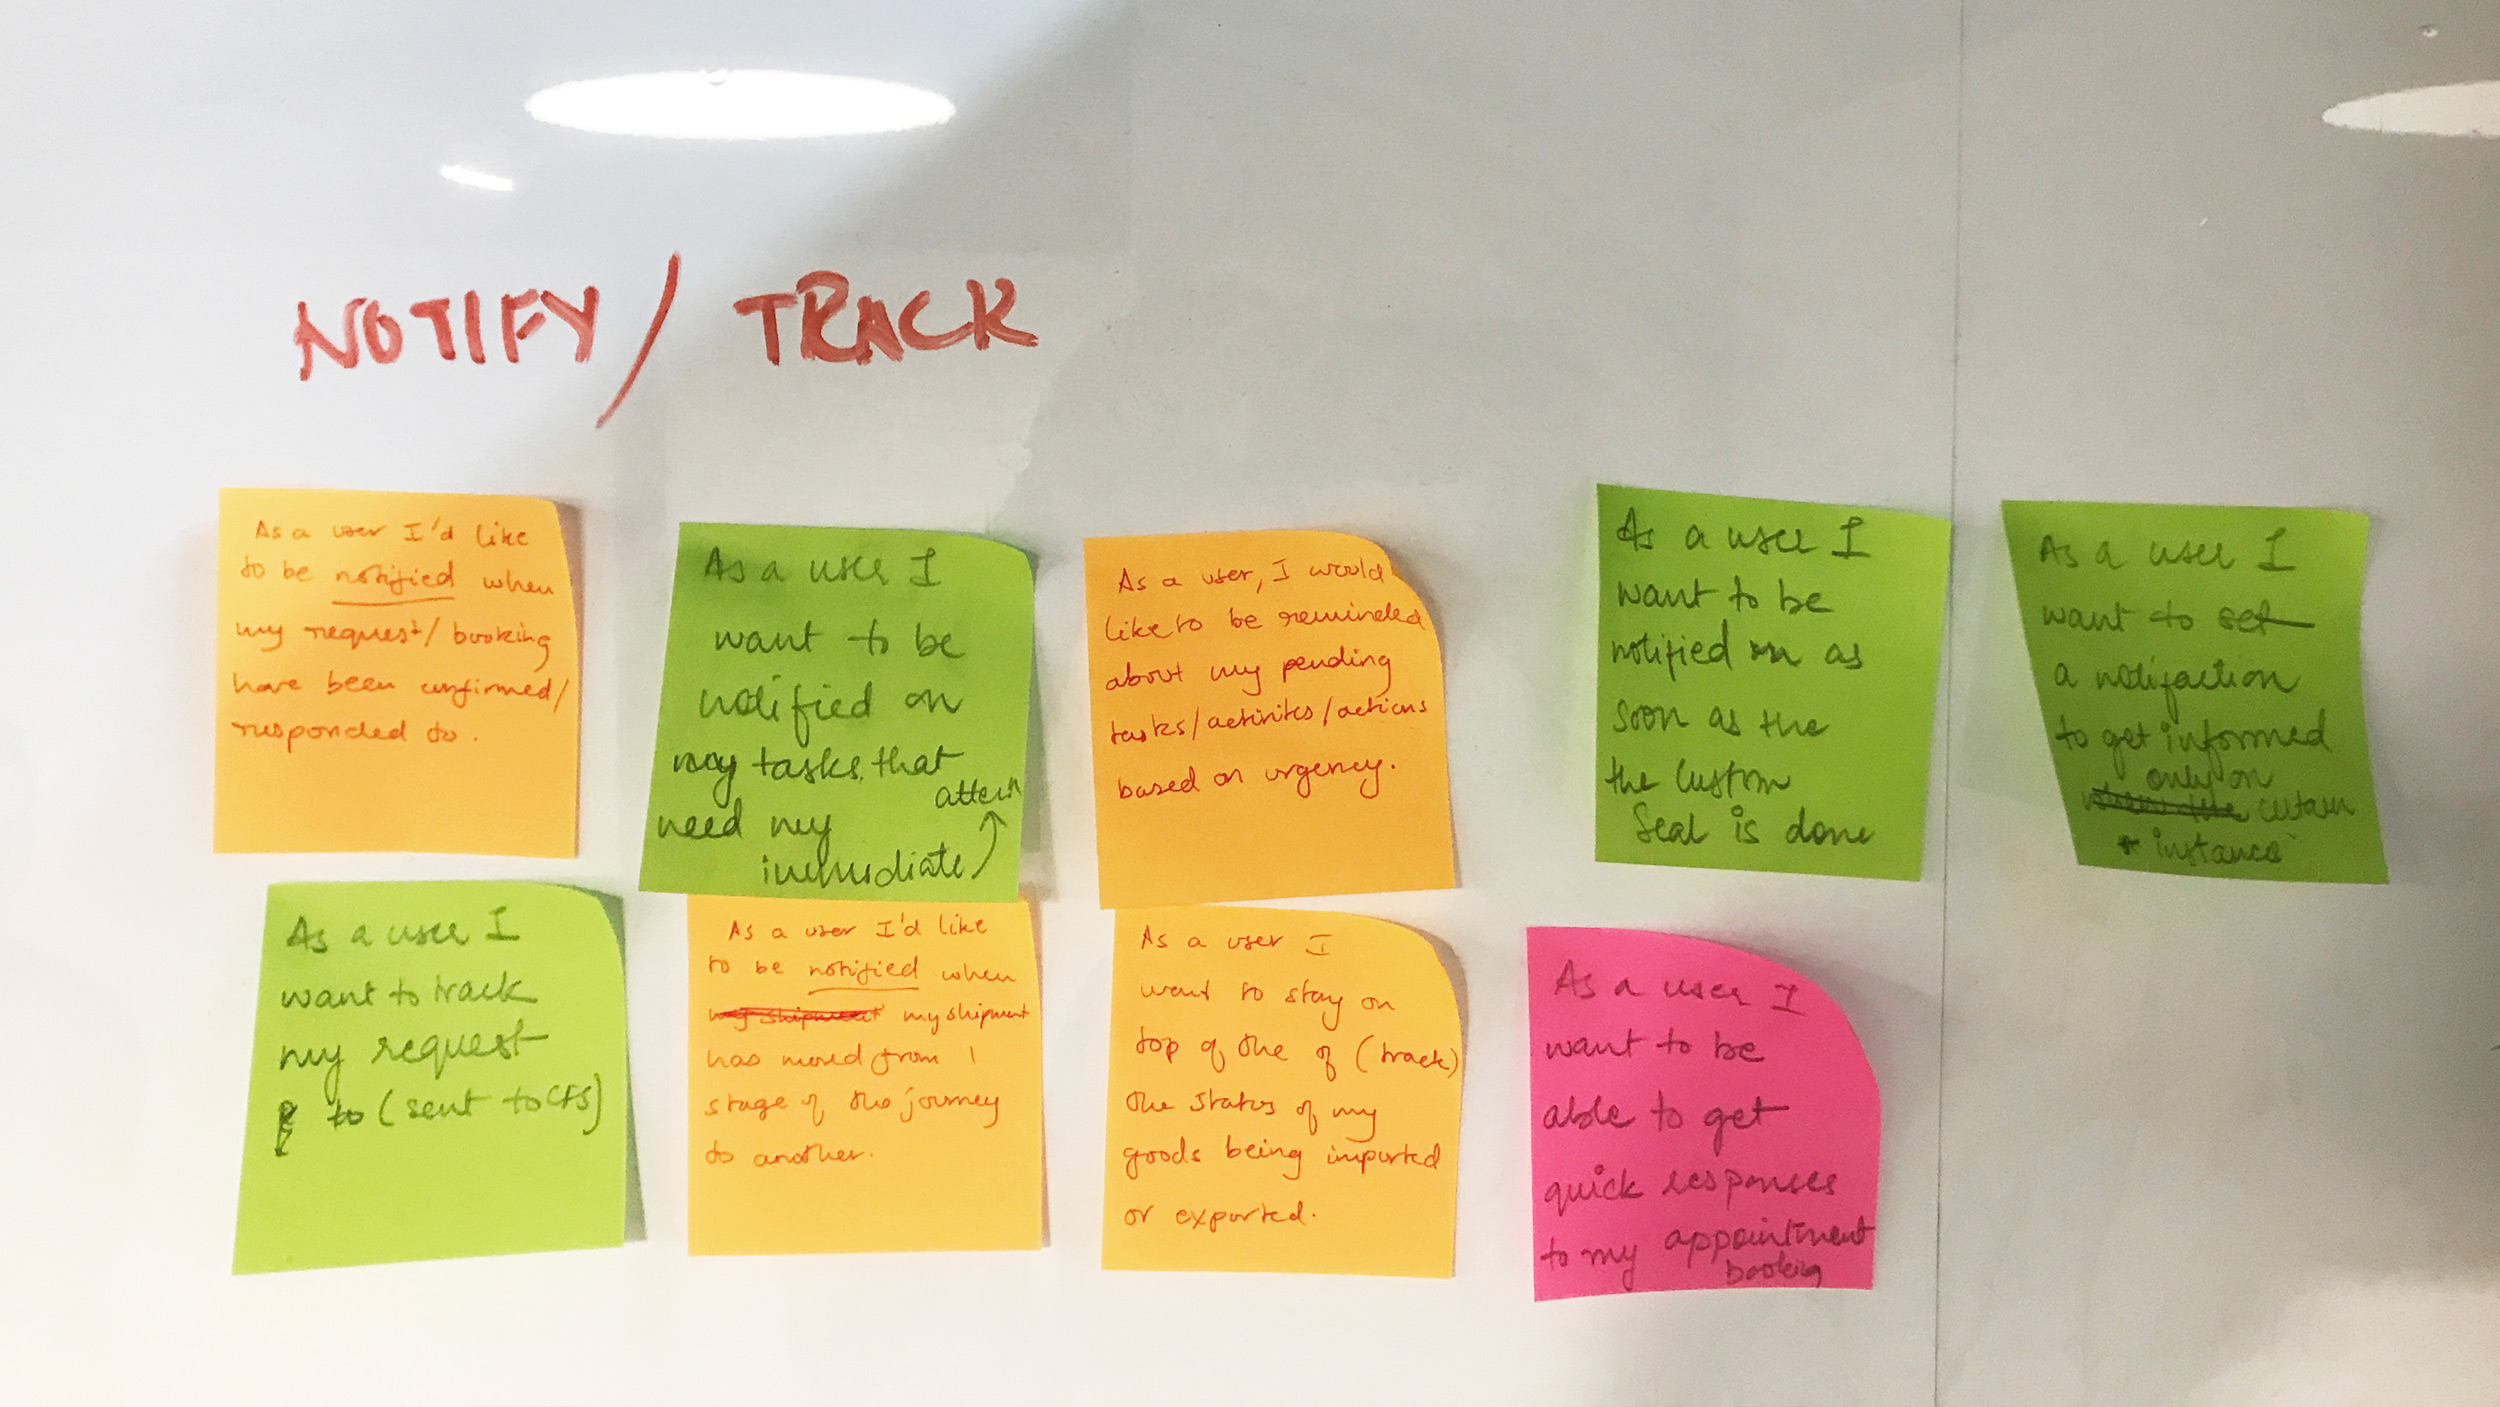 NOTIFY / TRACK
As a user I'd like
to be notified when
my request/booking
have been confirmed/
responded to.
As a user I
want to be
notified on
my tasks that
need my
immediate
attentn
As a user, I would
like to be reminded
about my pending
tasks/activites/actions
based on urgency.
As a user I
want to be
notified as
soon as the
the custom
seal is done
As a user I
want to set
a notifaction
to get informed
only on
certain
instance
As a user I
want to track
my request
to (sent to CFS)
As a user I'd like
to be notified when
my shipment my shipment
has moved from 1
stage of the journey
to another.
As a user I
want to stay on
top of the of (track)
the status of my
goods being imported
or exported.
As a user I
want to be
able to get
quick responses
to my appointment
booking